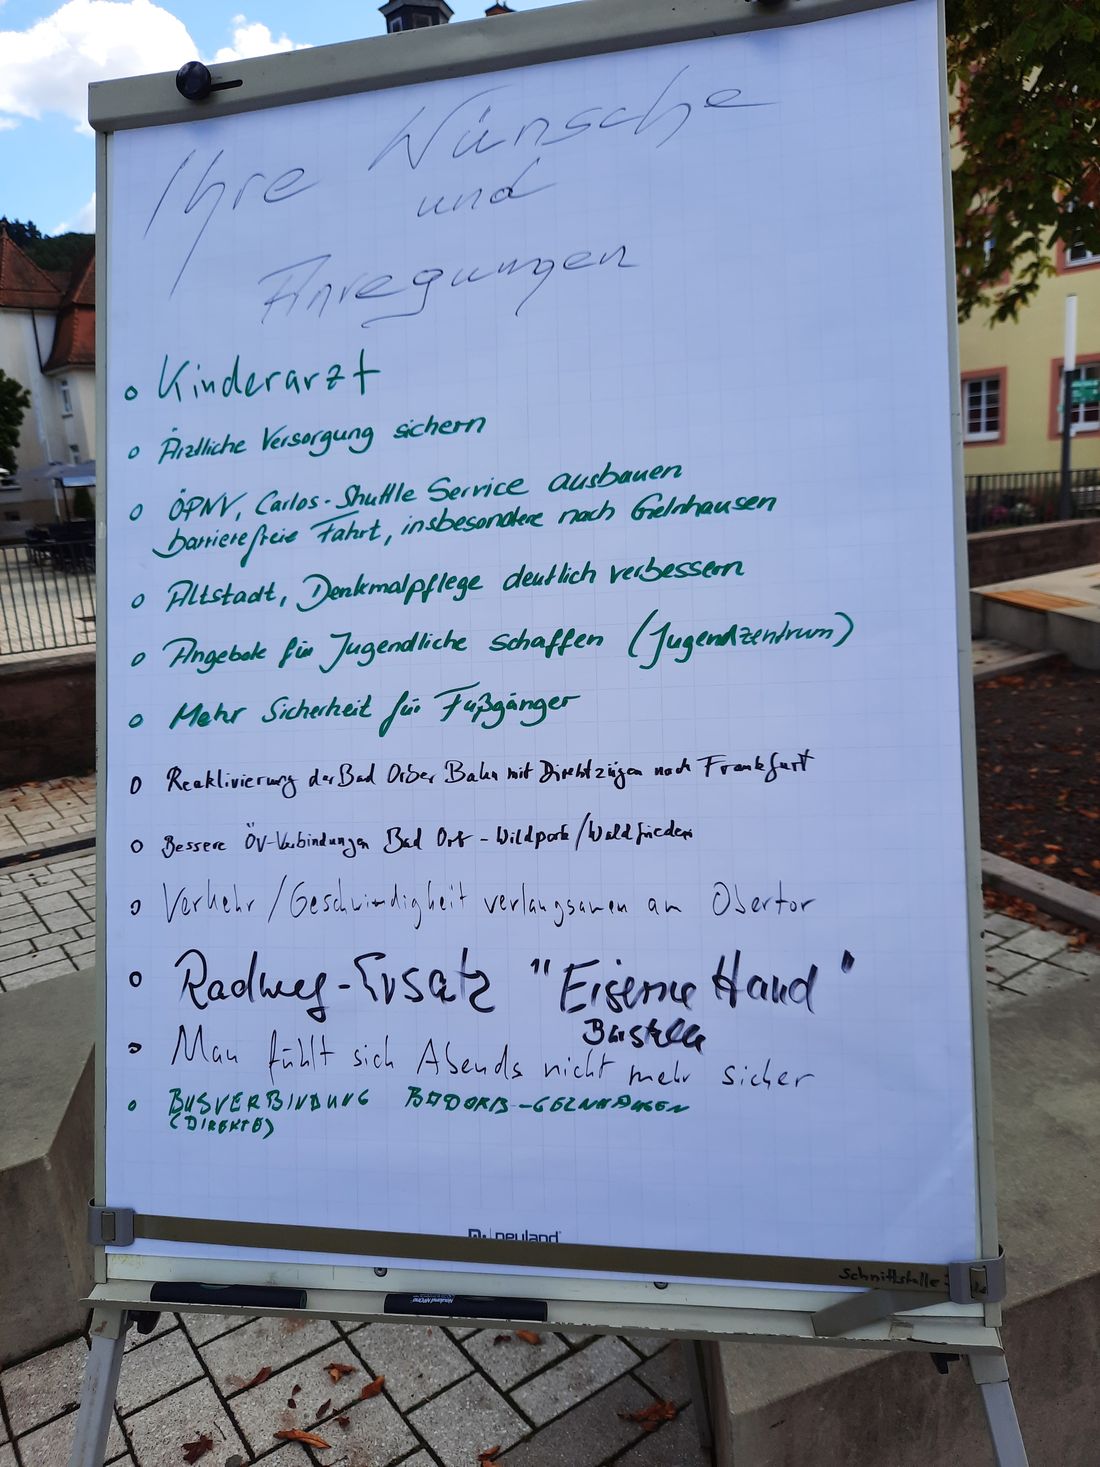 Ihre Wünsche
und
Anregungen
o Kinderarzt
o Ärztliche Versorgung sichern
o ÖPNV, Carlos-Shuttle Service ausbauen
barrierefreie Fahrt, insbesondere nach Gelnhausen
o Altstadt, Denkmalpflege deutlich verbessern
o Angebote für Jugendliche schaffen (Jugendzentrum)
o Mehr Sicherheit für Fußgänger
o Reaktivierung der Bad Orber Bahn mit Direktzügen nach Frankfurt
o Bessere ÖV-Verbindungen Bad Orb - Wildpark/Waldfrieden
o Verkehr/Geschwindigkeit verlangsamen am Obertor
o Radweg-Ersatz "Eiserne Hand"
Baustelle
o Man fühlt sich Abends nicht mehr sicher
o BUSVERBINDUNG BADORB-GELNHAUSEN
(DIREKTE)
neuland
Schnittstelle